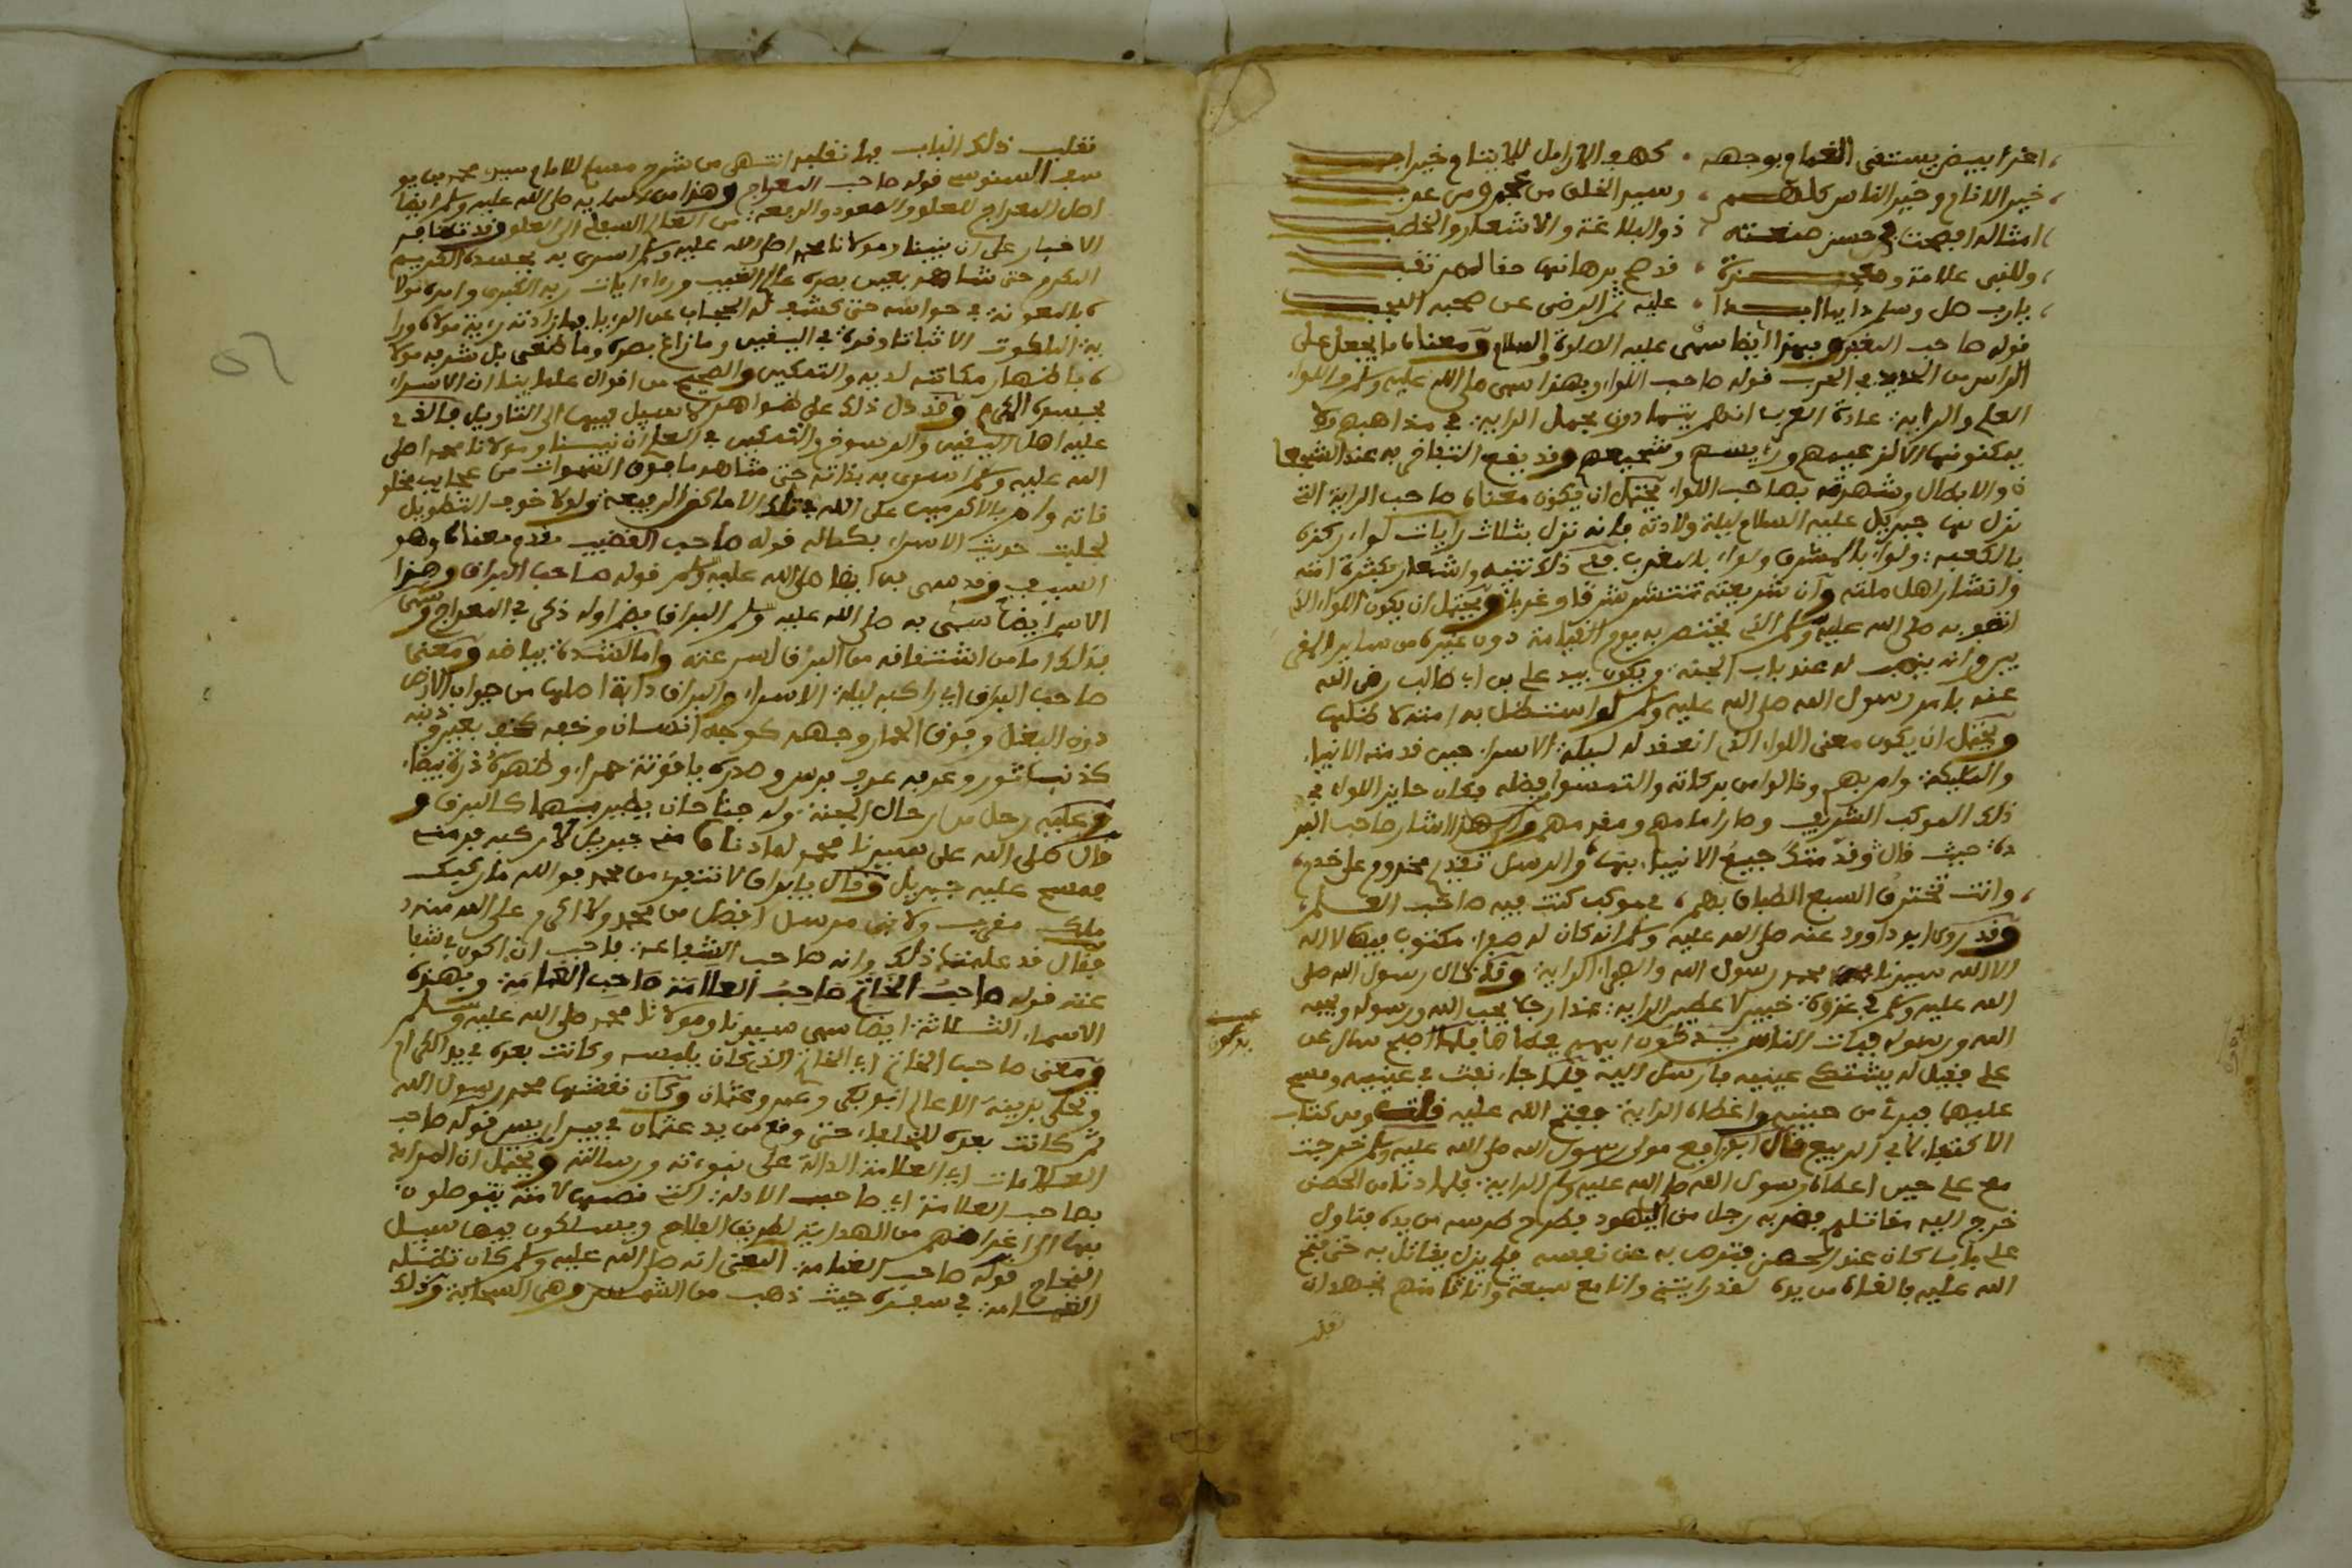 اغر ابيض يستسقى الغمام بوجهه كهف الارامل للايتام خير اب
خير الانام وخير الناس كلهم وسيد الخلق من عجم ومن عرب
امثاله افصحت في حسن صنعته ذو البلاغة والاشعار والخطب
وللنبي علامة ومعجزة قد صح برهانها حقا
يا رب صل وسلم دايما ابدا عليه ثم الرضى عن صحبه النجب
قوله صاحب المغفر وبهذا ايضا سمى عليه الصلوة والسلام ومعناه ما يجعل على
الراس من الحديد في الحرب قوله صاحب اللواء وبهذا سمى صلى الله عليه وسلم واللواء
العلم والراية عادة العرب انهم يتمادون بحمل الراية في مذاهبهم ولا
يمكنونها الا لزعيمهم ورئيسهم وشجيعهم وقد يقع التنافس به عند الشجعا
ن والابطال وشهرته بصاحب اللواء يحتمل ان يكون معناه صاحب الراية التي
نزل بها جبريل عليه السلام ليلة ولادته فانه نزل بثلاث رايات لواء ركزه
بالكعبة ولواء بالمشرق ولواء بالمغرب ففي ذلك تنبيه واشعار بكثرة امته
وانتشار اهل ملته وان شريعته تنتشر شرقا وغربا ويحتمل ان يكون اللواء الذي
صلى الله عليه وسلم الذي يختص به يوم القيامة دون غيره من ساير
وانه ينصب له عند باب الجنة ويكون بيد علي بن ابي طالب رضي الله
عنه بامر رسول الله صلى الله عليه وسلم استظل به امته لا
ويحتمل ان يكون معنى اللواء الذي انعقد له ليلة الاسراء حين قدمته الانبياء
والمليكة وام بهم ونالوا من بركاته والتمسوا فضله فكان حايز اللواء في
ذلك الموكب الشريف وصار امامهم ومقدمهم والى هذا اشار صاحب البر
دة حيث قال وقدمتك جميع الانبياء بها والرسل تقديم مخدوم على خدم
وانت تخترق السبع الطباق بهم في موكب كنت فيه صاحب العلم
وقد روى ابو داوود عنه صلى الله عليه وسلم انه كان له مكتوب فيها لا اله
الا الله سيدنا محمد رسول الله الراية وقد قال رسول الله صلى
الله عليه وسلم في غزوة خيبر لاعطين الراية غدا رجلا يحب الله ورسوله ويحبه
الله ورسوله فبات الناس يدكون ايهم يعطاها فلما اصبح سال عن
علي فقيل له يشتكي عينيه فارسل اليه فلما جاء نفث في عينيه ومسح
عليهما فبرئ من حينه واعطاه الراية ففتح الله عليه قلت ومن كتاب
الاكتفاء لابي الربيع قال ابو رافع مولى رسول الله صلى الله عليه وسلم خرجت
مع علي حين اعطاه رسول الله صلى الله عليه وسلم الراية فلما دنا من الحصن
خرج اليه مقاتلهم فضربه رجل من اليهود فطرح ترسه من يده فتناول
علي بابا كان عند الحصن فترس به عن نفسه فلم يزل يقاتل به حتى فتح
الله عليه فالقاه من يده لقد رايتني وانا مع سبعة وانا ثامنهم نجهد ان
نقلب ذلك الباب فما نقلبه انتهى من شرح للامام سيدي محمد بن يو
سف السنوسي قوله صاحب المعراج وهذا من صلى الله عليه وسلم ايضا
اصل المعراج للعلو والصعود والرفعة من العالم السفلي الى العلو وقد تظافر
الاخبار على ان نبينا ومولانا محمد صلى الله عليه وسلم اسري به بجسده الكريم
المكرم حتى شاهد بعين بصره عالم الغيب وراى ايات ربه الكبرى وامده مولا
ه بالمعونة في حواسه حتى كشف له الحجاب عن فما زادته رؤية مولاه ورا
ية الملكوت الا ثباتا وقوة في اليقين وما زاغ بصره وما طغى بل شرفه مولا
ه باظهار مكانته لديه والتمكين والصحيح من اقوال علماينا ان الاسراء
بجسده الكريم وقد دل ذلك على ظواهر لا سبيل فيها الى التاويل فالذي
عليه اهل اليقين والرسوخ والتمكين في العلم ان نبينا ومولانا محمد صلى
الله عليه وسلم اسرى به بذاته حتى شاهد ما فوق السموات من عجايب مخلو
قاته وام بالاكرمين على الله في تلك الاماكن الرفيعة ولولا خوف التطويل
لجلبت حديث الاسراء بكماله قوله صاحب القضيب تقدم معناه وهو
السيف وقد سمى به ايضا صلى الله عليه وسلم قوله صاحب البراق وهذا
الاسم ايضا سمي به صلى الله عليه وسلم البراق بضم اوله ذكر في المعراج وسمي
بذلك اما من اشتقاقه من البرق لسرعته واما لشدة بياضه ومعنى
صاحب البراق اي راكبه ليلة الاسراء والبراق دابة اصلها من حيوان الارض
دون البغل وفوق الحمار وجهه كوجه انسان وخفه كخف بعير وذنبه
كذنب ثور وعرفه عرف فرس وصدره ياقوتة حمراء وظهره درة بيضاء
وعليه رحل من رحال الجنة وله جناحان يطير بهما كالبرق و
قال صلى الله على سيدنا محمد لما دنا منه جبريل لاركبه فر منه
فمسح عليه جبريل وقال يا براق لا تنفر من محمد فوالله ما ركبك
ملك مقرب ولا نبي مرسل افضل من محمد ولا اكرم على الله منه
فقال قد علمت ذلك وانه صاحب الشفاعة فاحب ان اكون في شفا
عته قوله صاحب الخاتم صاحب العلامة صاحب الغمامة وبهذه
الاسماء الثلاثة ايضا سمى سيدنا ومولانا محمد صلى الله عليه وسلم
ومعنى صاحب الخاتم اي الخاتم الذي كان يلبسه وكانت بعده في يد الكرام
ابو بكر وعمر وعثمان وكان نقشها محمد رسول الله
ثم كانت بعده للخلفاء حتى وقع من يد عثمان في بير اريس قوله صاحب
العلامات اي العلامة الدالة على نبوءته ورسالته ويحتمل ان المراد
بصاحب العلامة اي صاحب الادلة التي نصبها لامته يتوصلون
بها الى اغراضهم من الهداية لطريق الفلاح ويسلكون فيها سبيل
النجاح قوله صاحب الغمامة المعنى انه صلى الله عليه وسلم كان تظله
الغمامة في سفره حيث ذهب من الشمس وهي السحابة وذلك